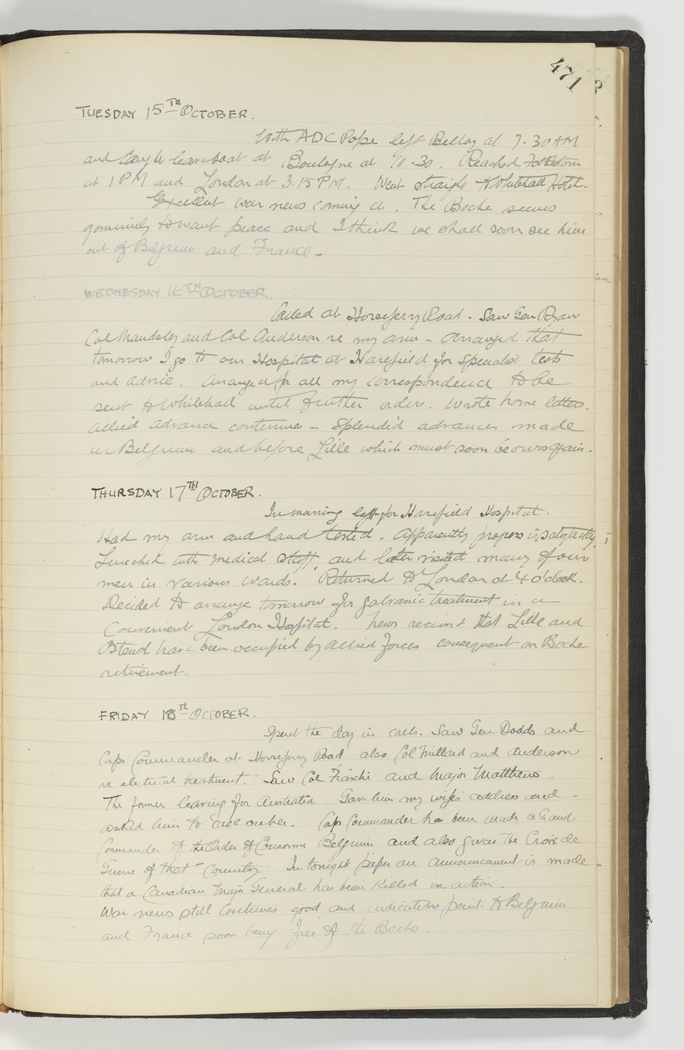 471
TUESDAY 15TH OCTOBER.
With ADC Pope left Belloy at 7.30 AM
and caught leave boat at Boulogne at 10.30. Reached Folkestone
at 1 PM and London at 3.15 PM. Went straight to Whitehall Hotel.
Excellent war news coming in. The Boche seems
genuinely to want peace and I think we shall soon see him
out of Belgium and France.
WEDNESDAY 16TH OCTOBER.
Called at Horseferry Road. Saw Gen Ryan
Col Maudsley and Col Anderson re my arm - arranged that
tomorrow I go to our Hospital at Harefield for Specialist tests
and advice. Arranged for all my correspondence to be
sent to Whitehall until further orders. Wrote home letters.
Allied advance continues - Splendid advances made
in Belgium and before Lille which must soon be ours again.
THURSDAY 17TH OCTOBER.
In morning left for Harefield Hospital.
Had my arm and hand tested. Apparently progress is satisfactory.
Lunched with Medical Staff and later visited many of our
men in various wards. Returned to London at 4 o'clock.
Decided to arrange tomorrow for galvanic treatment in a
Convenient London Hospital. News received that Lille and
Ostend have been occupied by Allied forces consequent on Boche
retirement.
FRIDAY 18TH OCTOBER.
Spent the day in calls. Saw Gen Dodds and
Corps Commander at Horseferry Road also Col Millard and Anderson
re electrical treatment. Saw Col and Major Matthews.
The former leaving for Australia. Gave him my wife's address and
asked him to call on her. Corps Commander has been made a Grand
Commander of the Order of Couronne Belgium and also given the Croix de
Guerre of that Country. In tonight's paper an announcement is made
that a Canadian Major General has been killed in action.
War news still continues good and indications point to Belgium
and France soon being free of the Boche.